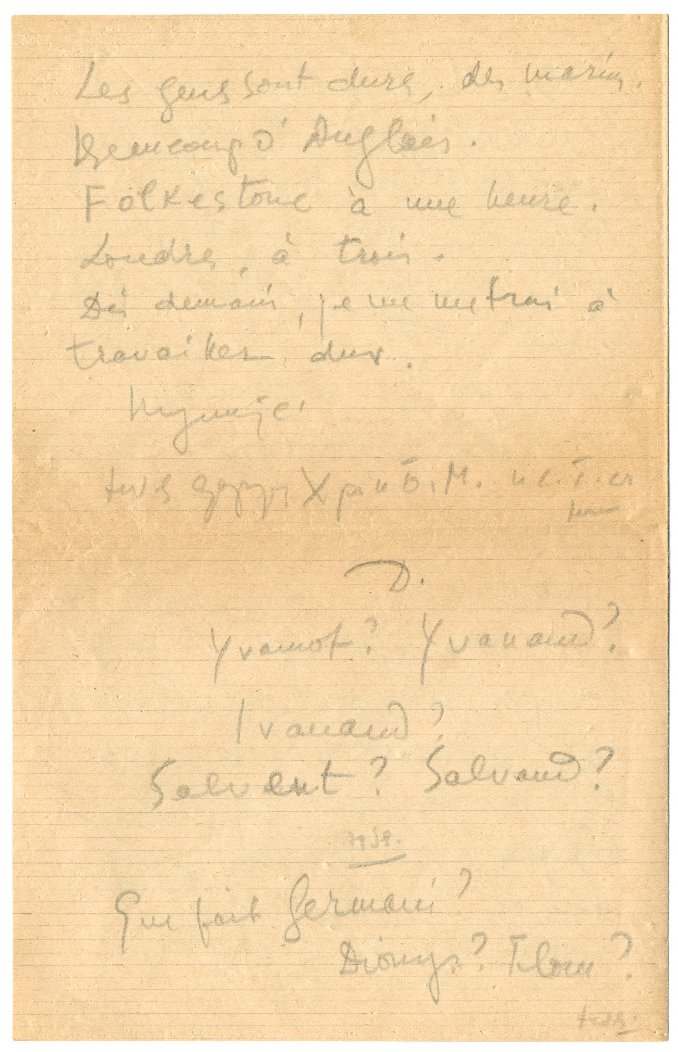 Les gens sont durs, des marins.
Beaucoup d'Anglais.
Folkestone à une heure.
Londres, à trois.
Dès demain, je me metrai à
travailler dur.
D.
Yvamot? Yvanaud?
Ivanaud?
Salvent? Salvaud?
Que fait Germain?
Dionys? Tilou?